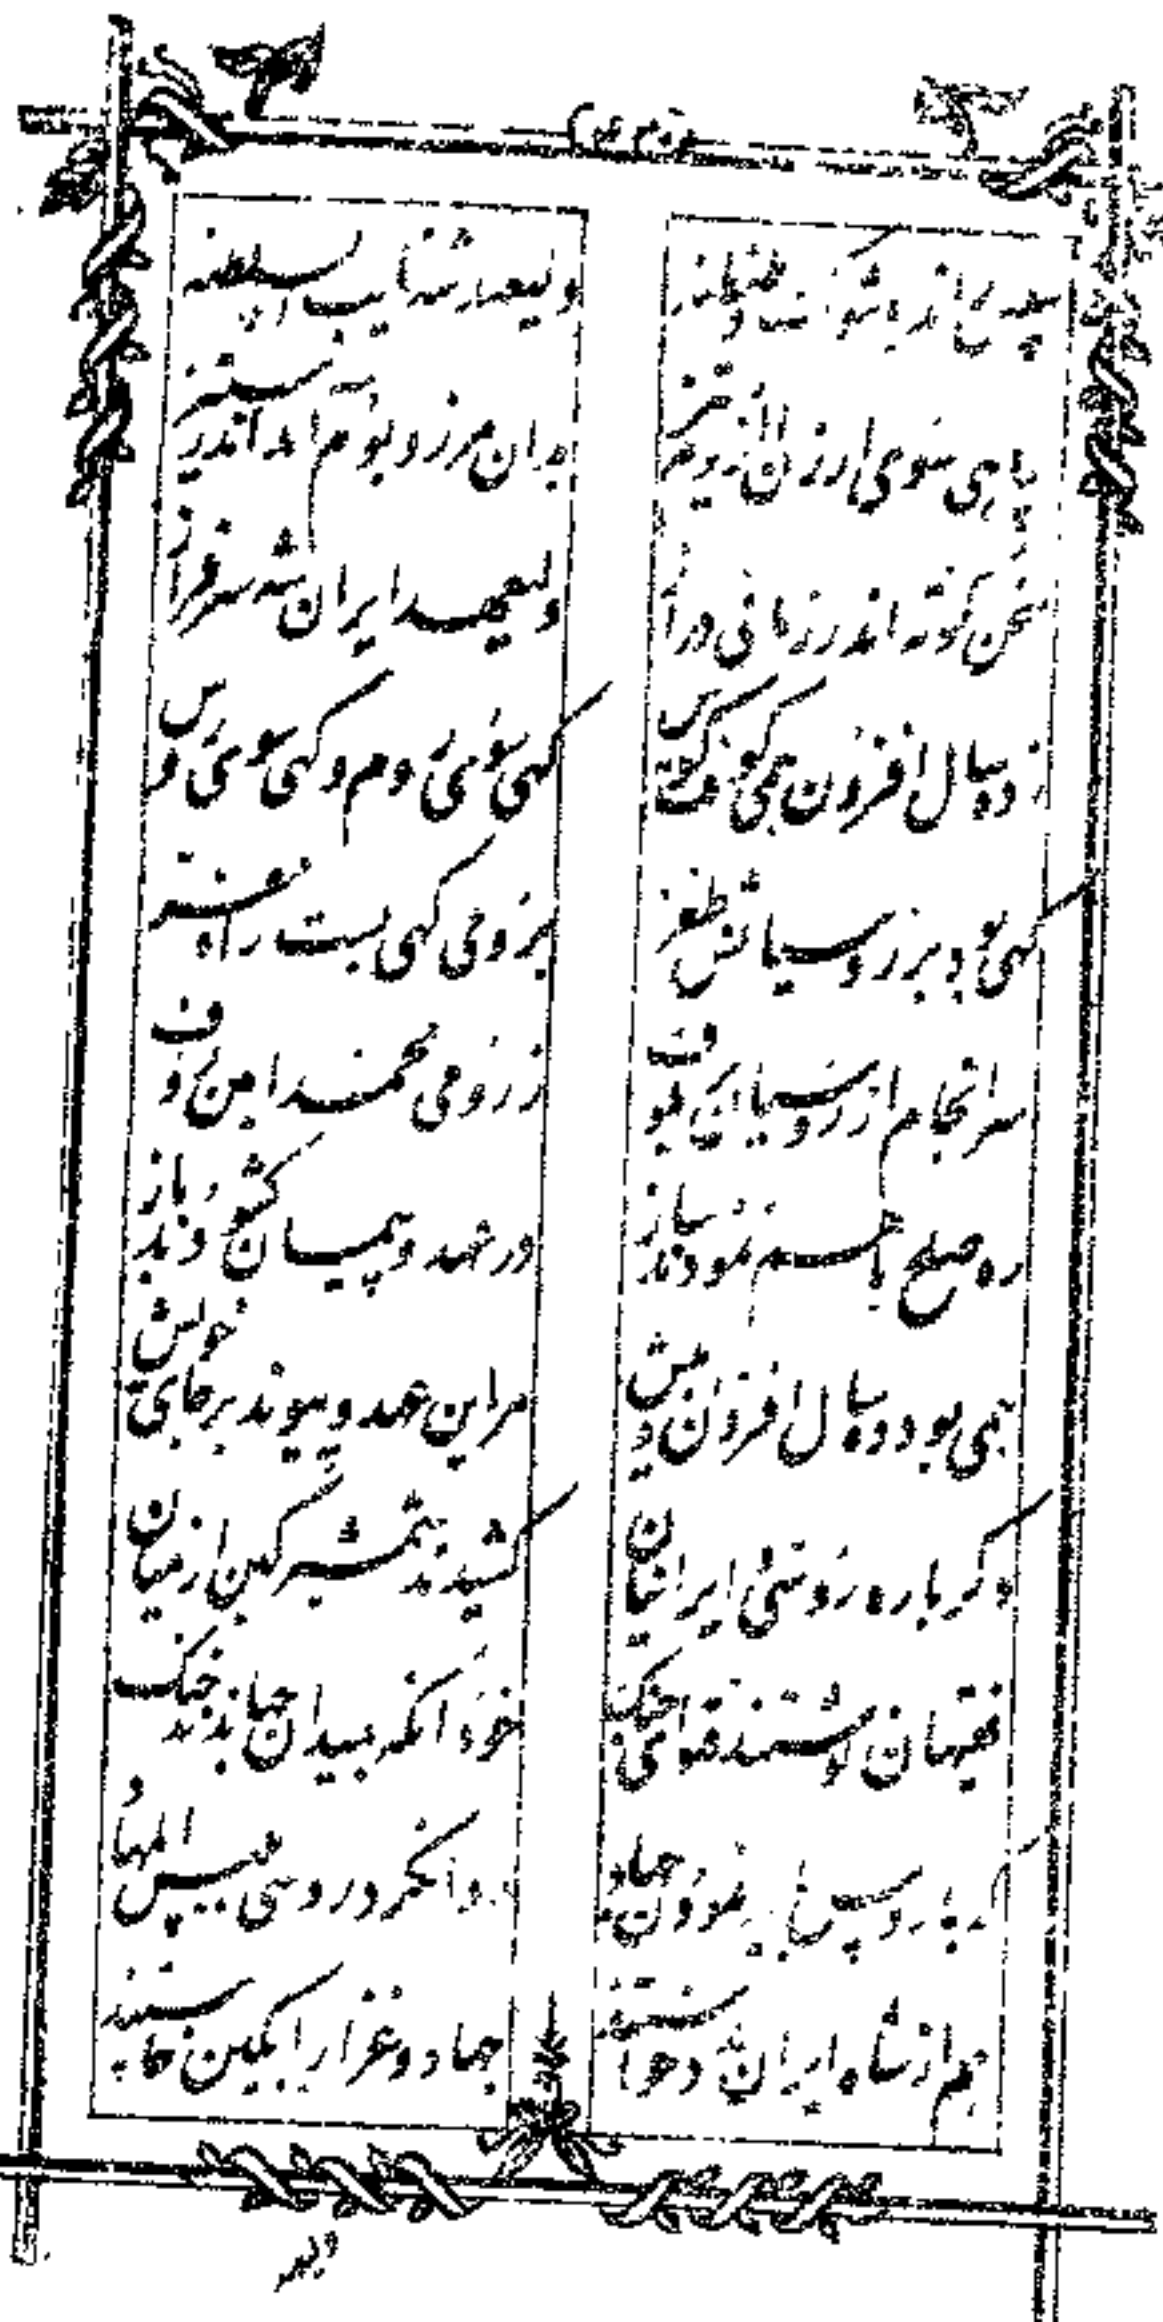 سپه راند با شوکت و طنطنه
ولیعهد شه نایب السلطنه
پیاپی سوی ارزن الروم تیز
بدان مرز و بوم آمد اندر ستیز
سخن کوته اندر زمانی دراز
ولیعهد ایران شه سرفراز
ز ده سال افزون همی کوفت کوس
گهی سوی روم و گهی سوی روس
گهی بود بر روسیانش ظفر
برومی گهی بست راه مفر
سرانجام از روسیان گبوف
ز رومی محمد امین رؤف
ره صلح با هم نمودند ساز
در عهد و پیمان گشودند باز
همی بود ده سال افزون و بیش
مر این عهد و پیوند بر جای خویش
دگر باره روسی و ایرانیان
کشیدند شمشیر کین از میان
فقیهان نوشتند فتوای جنگ
خود آنگه بمیدان جهاندند خنگ
که با روس باید نمودن جهاد
روانگر در روسی پلیس المهاد
هم از شاه ایران و درخواستند
جهاد و غزا را بکین خاستند
وبعد